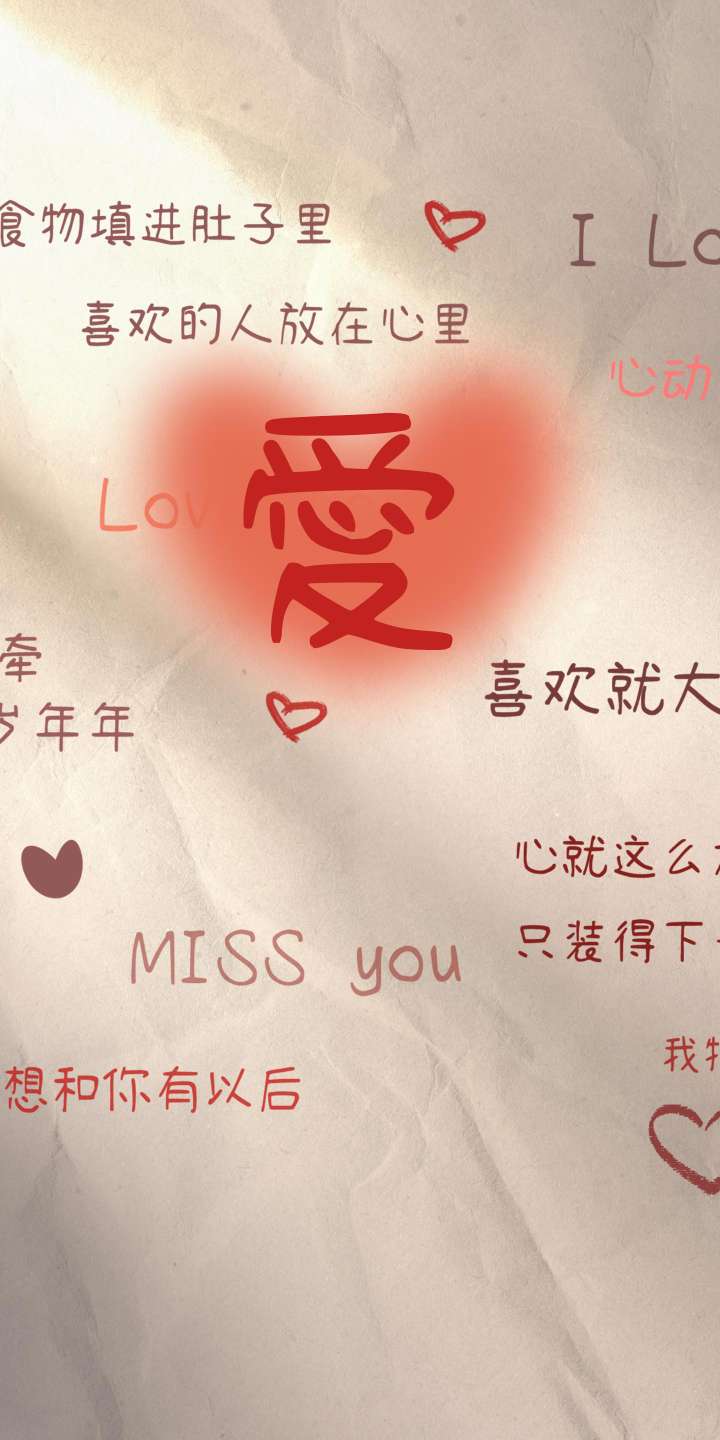 食物填进肚子里
I Lo
喜欢的人放在心里
心动
愛
Lov
牵
岁年年
喜欢就大
心就这么
只装得下
MISS you
我
想和你有以后